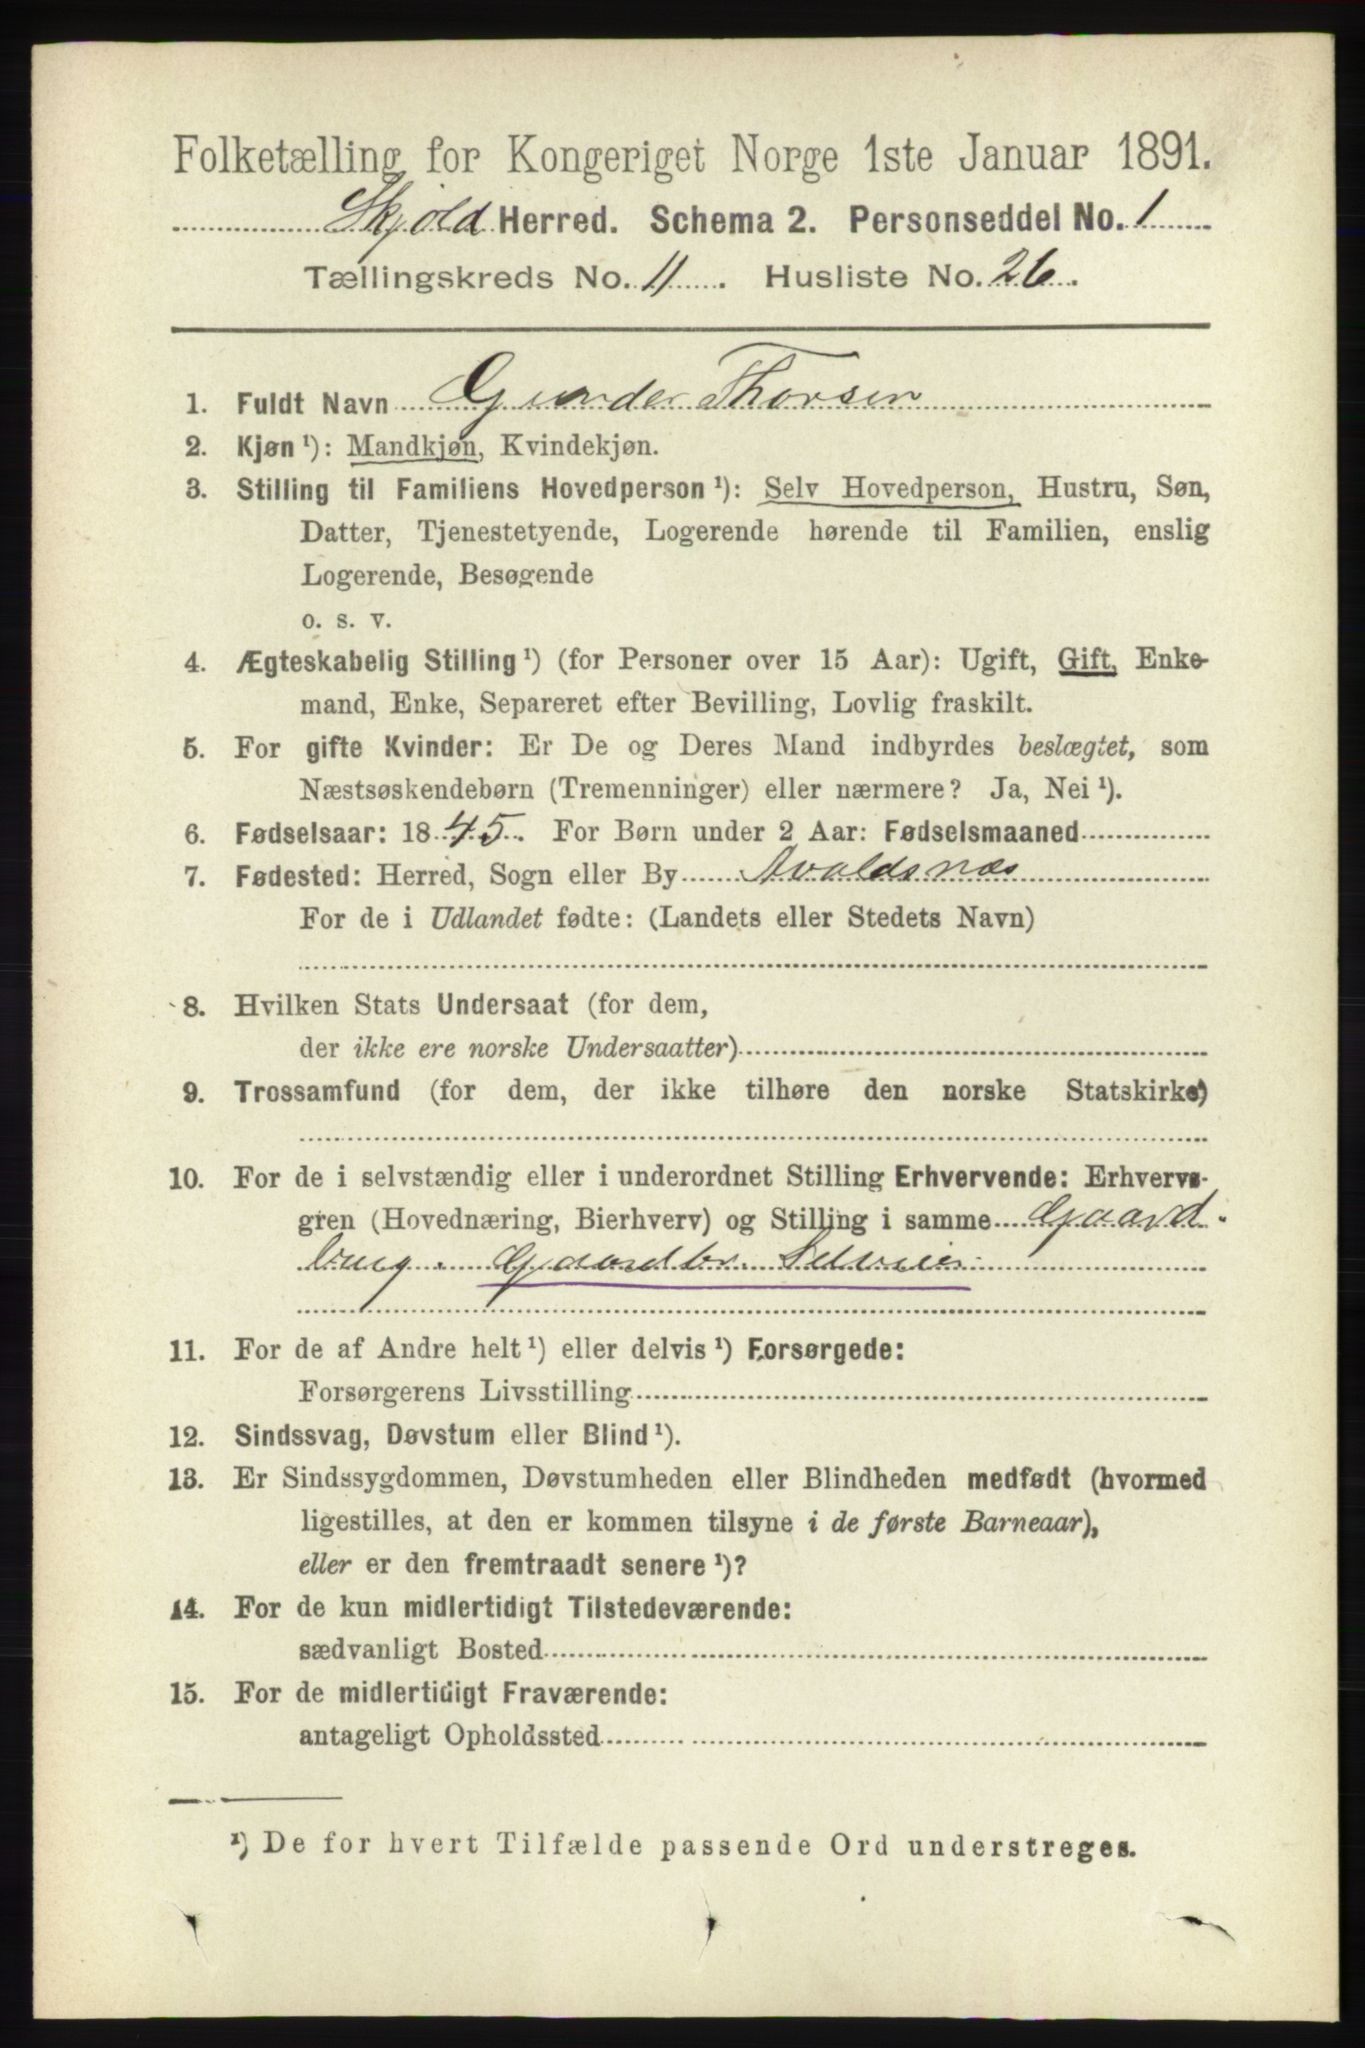 Folketælling for Kongeriget Norge 1ste Januar 1891.
Skjold Herred. Schema 2. Personseddel No. 1
Tællingskreds No. 11. Husliste No. 26.
1. Fuldt Navn Gunder Thorsen
2. Kjøn ¹): Mandkjøn, Kvindekjøn.
3. Stilling til Familiens Hovedperson ¹): Selv Hovedperson, Hustru, Søn,
Datter, Tjenestetyende, Logerende hørende til Familien, enslig
Logerende, Besøgende
o. s. v.
4. Ægteskabelig Stilling ¹) (for Personer over 15 Aar): Ugift, Gift, Enke-
mand, Enke, Separeret efter Bevilling, Lovlig fraskilt.
5. For gifte Kvinder: Er De og Deres Mand indbyrdes beslægtet, som
Næstsøskendebørn (Tremenninger) eller nærmere? Ja, Nei ¹).
6. Fødselsaar: 1845. For Børn under 2 Aar: Fødselsmaaned
7. Fødested: Herred, Sogn eller By Avaldsnæs
For de i Udlandet fødte: (Landets eller Stedets Navn)
8. Hvilken Stats Undersaat (for dem,
der ikke ere norske Undersaatter)
9. Trossamfund (for dem, der ikke tilhøre den norske Statskirke)
10. For de i selvstændig eller i underordnet Stilling Erhvervende: Erhvervs-
gren (Hovednæring, Bierhverv) og Stilling i samme Gaard-
brug. Gaardbr. Selveier
11. For de af Andre helt ¹) eller delvis ¹) Forsørgede:
Forsørgerens Livsstilling
12. Sindssvag, Døvstum eller Blind ¹).
13. Er Sindssygdommen, Døvstumheden eller Blindheden medfødt (hvormed
ligestilles, at den er kommen tilsyne i de første Barneaar),
eller er den fremtraadt senere ¹)?
14. For de kun midlertidigt Tilstedeværende:
sædvanligt Bosted
15. For de midlertidigt Fraværende:
antageligt Opholdssted
¹) De for hvert Tilfælde passende Ord understreges.